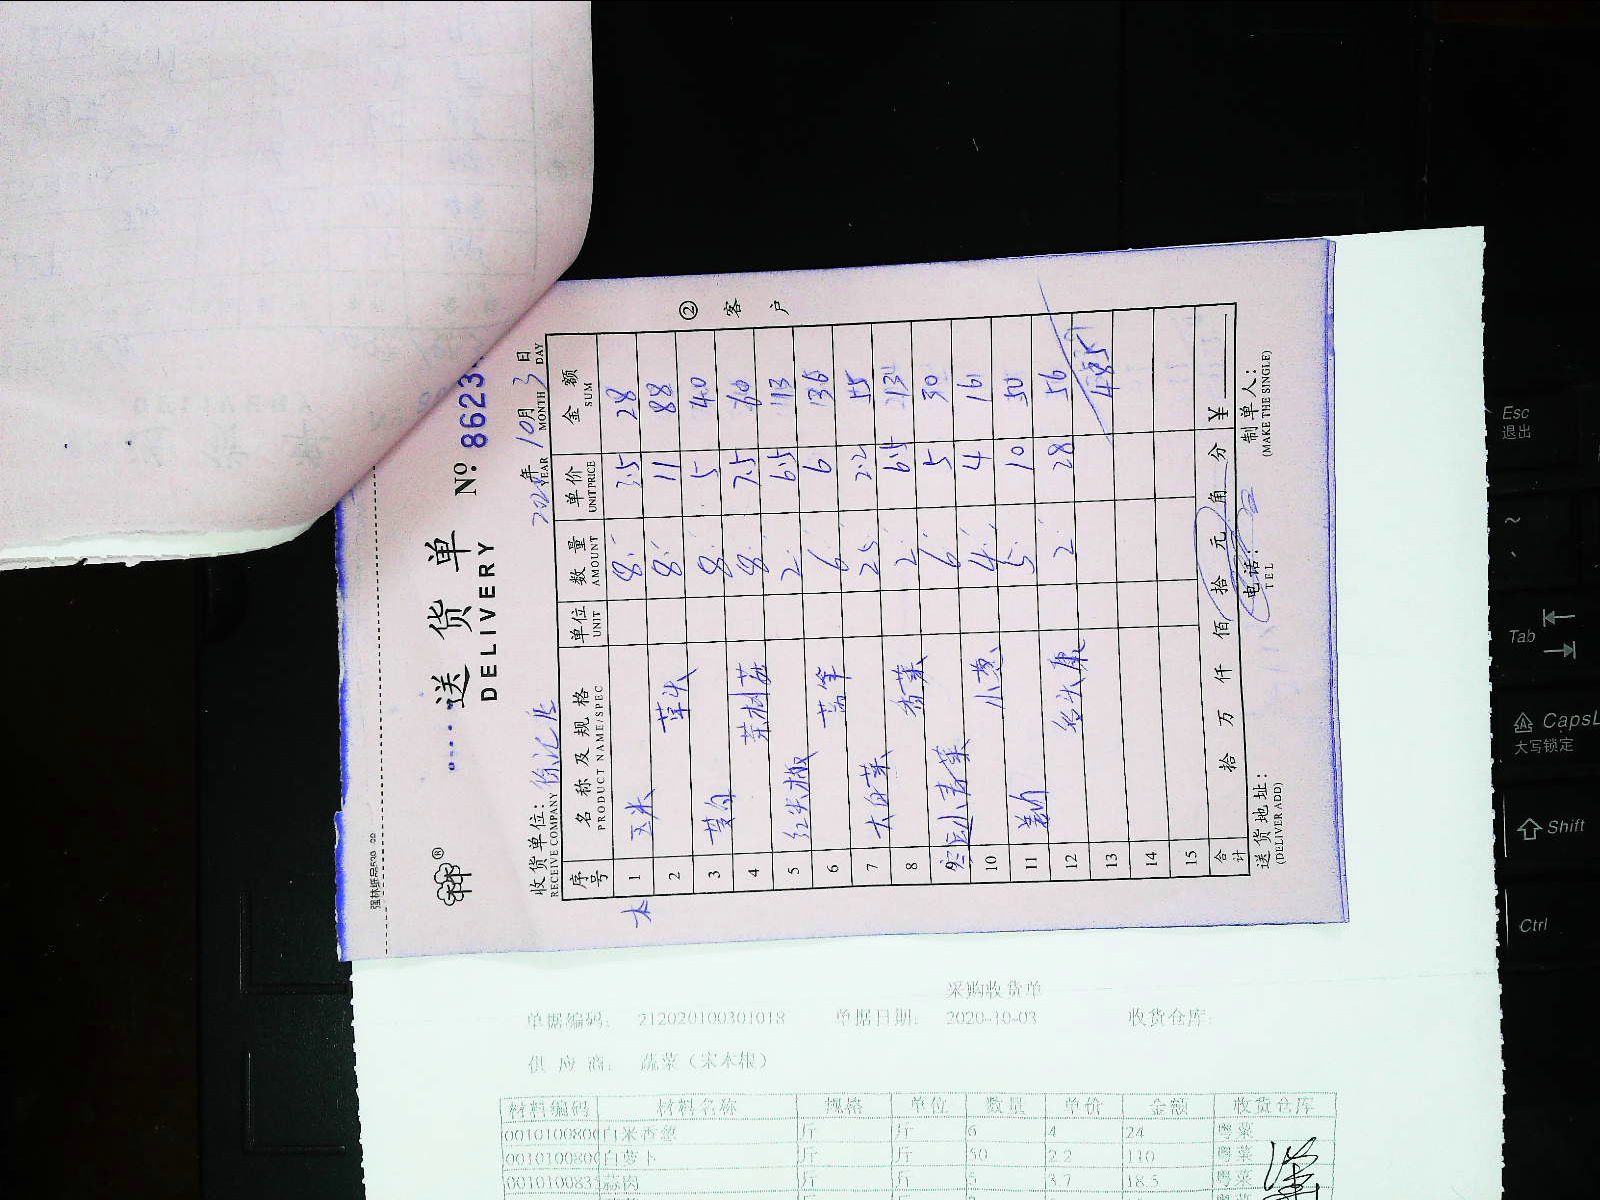 强林纸品
送货单 No 8623
DELIVERY
② 客户
收货单位： 徐汇店 年 10月 3日
RECEIVE COMPANY YEAR MONTH DAY
序号 名称及规格 单位 数量 单价 金额
PRODUCT NAME/SPEC UNIT AMOUNT UNIT PRICE SUM
1 玉米 8 3.5 28
2 草头 8 11 88
3 8 5 40
4 茶树菇 8 7.5 60
5 红尖椒 2 6.5 13
6 莴笋 6 6
7 大白菜 25 2.2 55
8 香菜 2 6.5 13
9 小青菜 6 5 30
10 小葱 4 4 16
11 5 10 50
12 2 28 56
13 485
14
15
合计 拾 万 仟 佰 拾 元 角 分 ¥
送货地址： 电话： 制单人：
(DELIVER ADD) TEL (MAKE THE SINGLE)
采购收货单
单据编码： 212020100301018 单据日期： 2020-10-03 收货仓库：
供应商： 蔬菜（宋本根）
材料编码 材料名称 规格 单位 数量 单价 金额 收货仓库
00101008000 白米香葱 斤 斤 6 4 24 粤菜
00101008000 白萝卜 斤 斤 50 2.2 110 粤菜
0010100835 蒜肉 斤 斤 5 3.7 18.5 粤菜
Esc
退出
~
Tab
CapsL
大写锁定
Shift
Ctrl